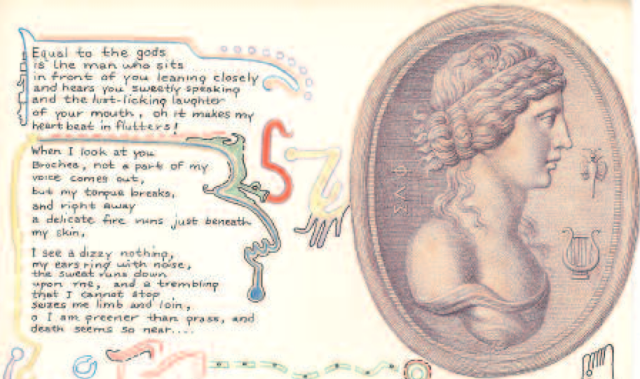 Equal to the gods
is the man who sits
in front of you leaning closely
and hears you sweetly speaking
and the lust-licking laughter
of your mouth, oh it makes my
heart beat in flutters!
When I look at you
Brochea, not a part of my
voice comes out,
but my tongue breaks,
and right away
a delicate fire runs just beneath
my skin,
I see a dizzy nothing,
my ears ring with noise,
the sweat runs down
upon me, and a trembling
that I cannot stop
seizes me limb and loin,
o I am greener than grass, and
death seems so near....
ΣΑΦ